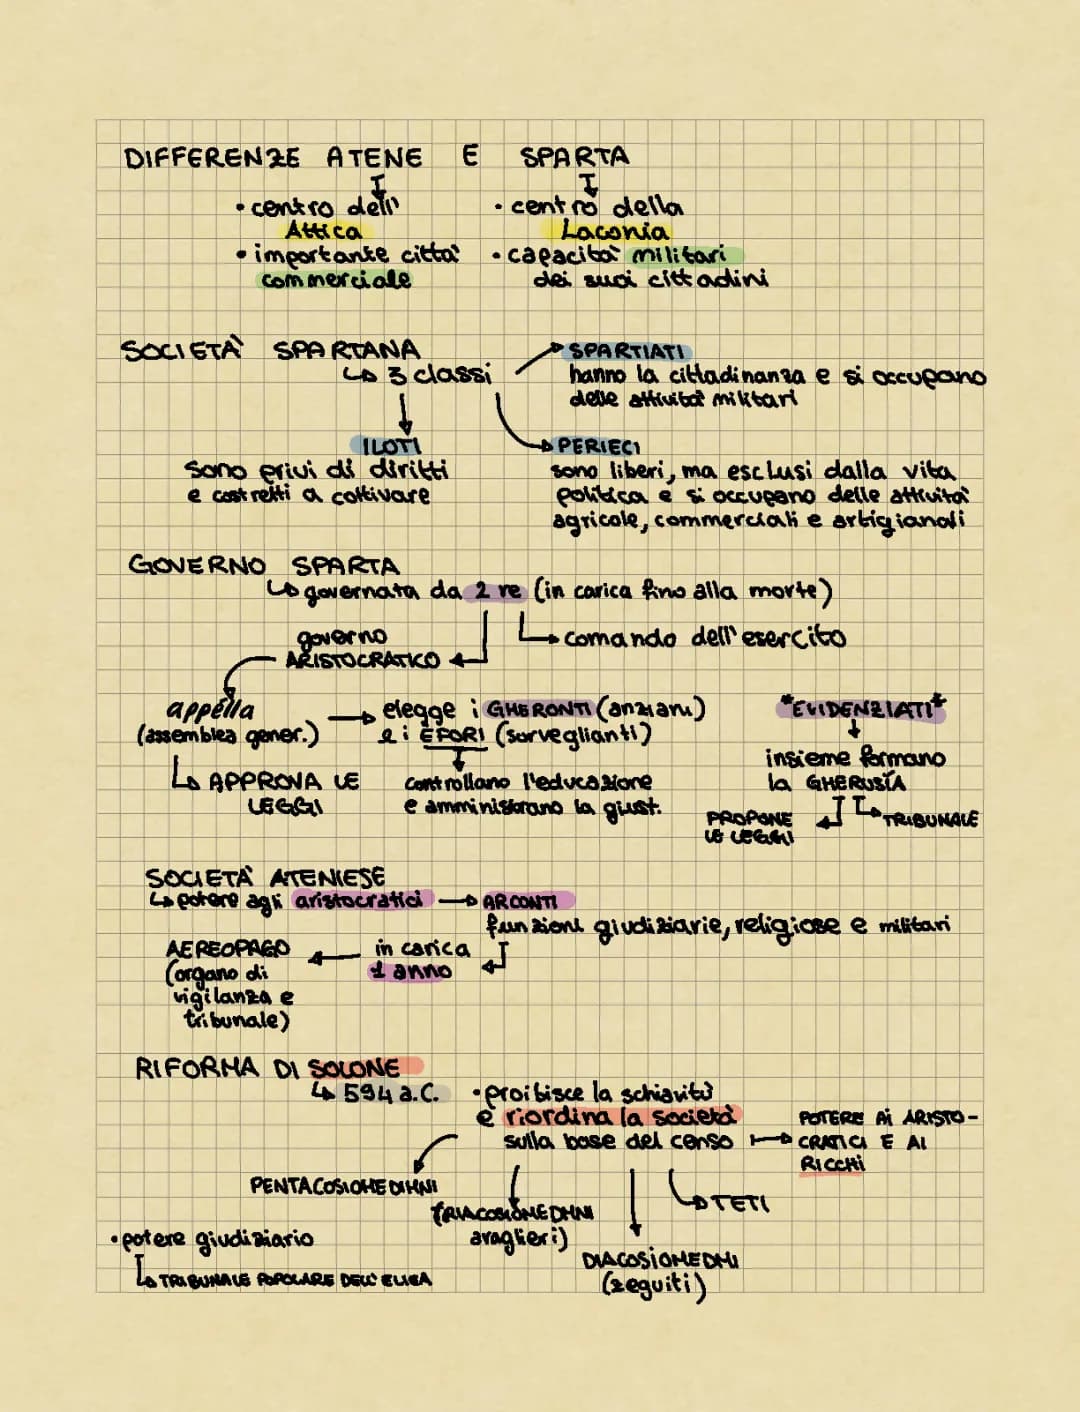 DIFFERENZE ATENE E SPARTA
• centro dell'
Attica
• importante città
commerciale
• centro della
Laconia
• capacità militari
dei suoi cittadini
SOCIETÀ SPARTANA
↳ 3 classi
SPARTIATI
hanno la cittadinanza e si occupano
delle attività militari
ILOTI
sono privi di diritti
e costretti a coltivare
PERIECI
sono liberi, ma esclusi dalla vita
politica e si occupano delle attività
agricole, commerciali e artigianali
GOVERNO SPARTA
↳ governata da 2 re (in carica fino alla morte)
comando dell'esercito
governo
ARISTOCRATICO
appélla
(assemblea gener.)
APPROVA LE
LEGGI
elegge i GHERONTI (anziani)
e i EFORI (sorveglianti)
controllano l'educazione
e amministrano la giust.
*EVIDENZIATI*
insieme formano
la GHERUSÍA
PROPONE
LE LEGGI
TRIBUNALE
SOCIETÀ ATENIESE
↳ potere agli aristocratici → ARCONTI
funzioni giudiziarie, religiose e militari
in carica
1 anno
AEREOPAGO
(organo di
vigilanza e
tribunale)
RIFORMA DI SOLONE
↳ 594 a.C.
• proibisce la schiavitù
e riordina la società
sulla base del censo
POTERE AI ARISTO-
CRATICI E AI
RICCHI
PENTACOSIOMEDIMNI
TETI
DIACOSIOMEDMI
(zeguiti)
• potere giudiziario
↳ TRIBUNALE POPOLARE DELL'ELIEA